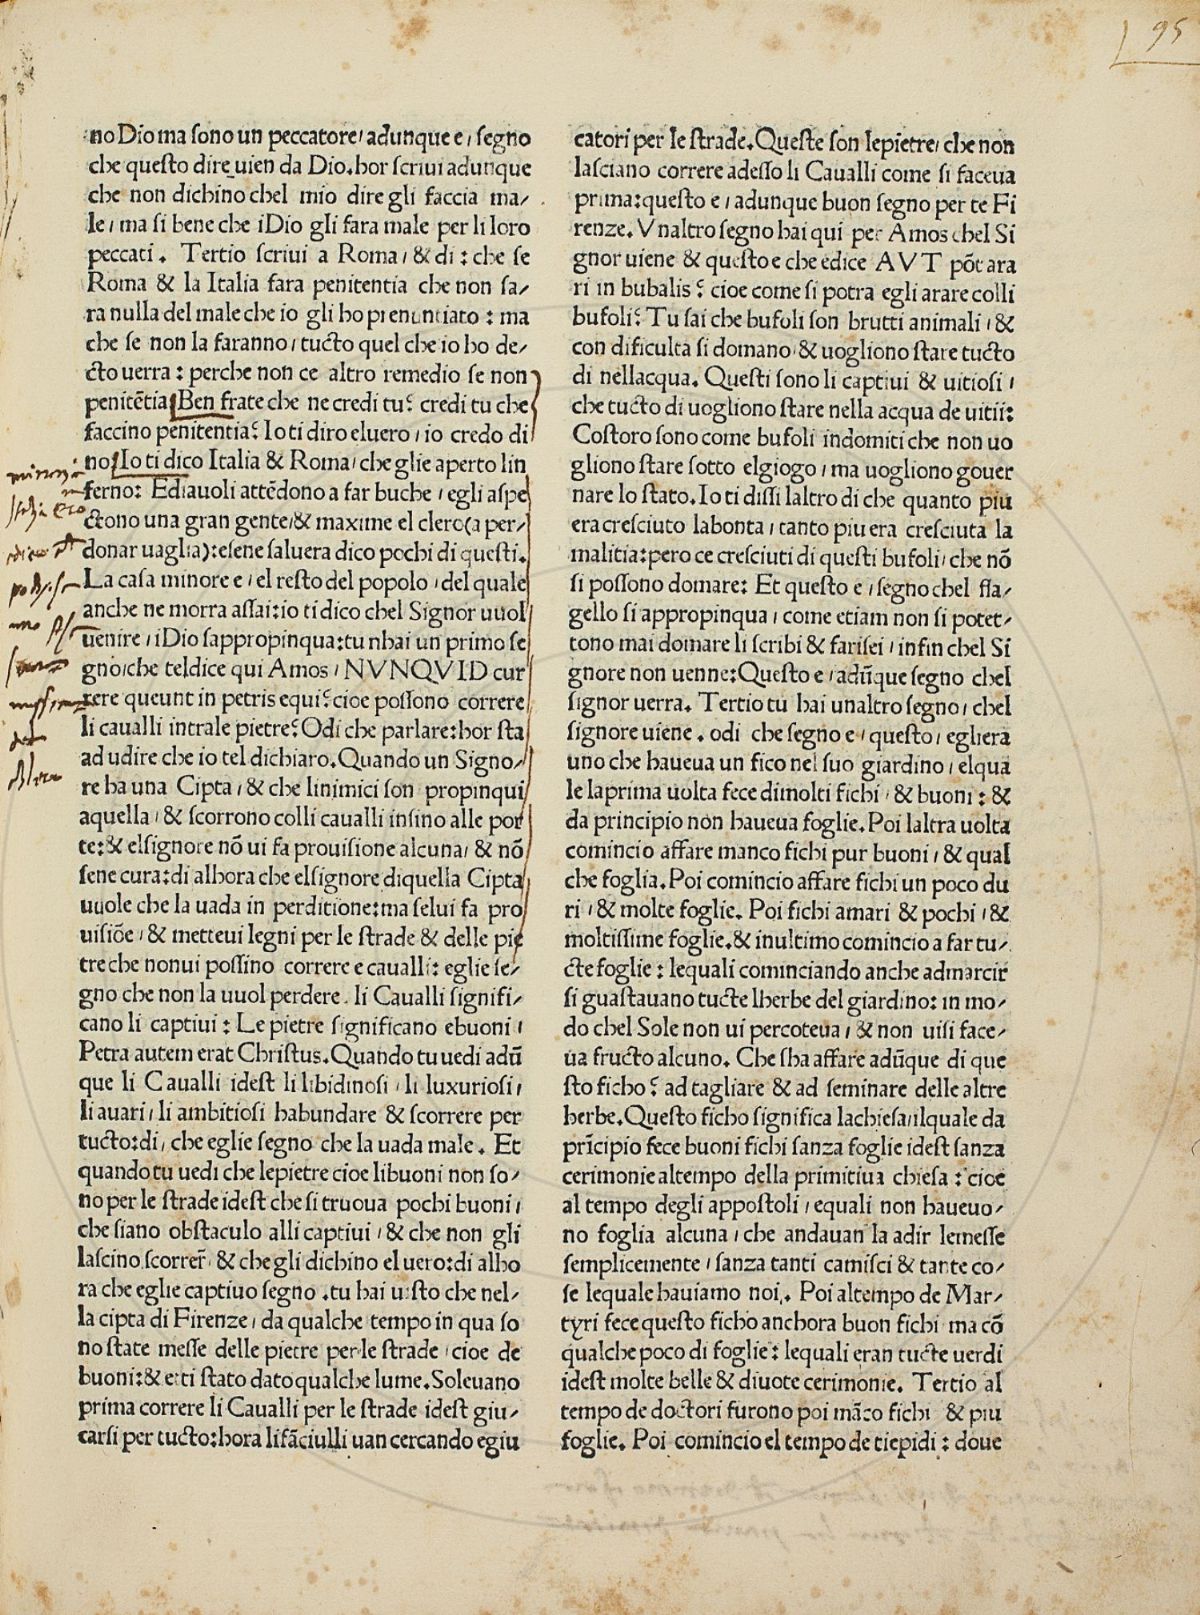 95
no Dio ma sono un peccatore/ adunque e/ segno
che questo dire uien da Dio. hor scriui adunque
che non dichino chel mio dire gli faccia ma/
le/ ma si bene che iDio gli fara male per li loro
peccati. Tertio scriui a Roma/ & di: che se
Roma & la Italia fara penitentia che non sa/
ra nulla del male che io gli ho prenuntiato: ma
che se non la faranno/ tucto quel che io ho de/
cto uerra: perche non ce altro remedio se non
penitētia. Ben frate che ne credi tu? credi tu che
faccino penitentia? Io ti diro eluero/ io credo di
no. Io ti dico Italia & Roma/ che glie aperto lin
ferno: Ediauoli attēdono a far buche/ egli aspe
ctono una gran gente/& maxime el clero(a per/
donar uaglia): esene saluera dico pochi di questi.
La casa minore e/ el resto del popolo/ del quale
anche ne morra assai: io ti dico chel Signor uuol
uenire/ iDio sappropinqua: tu nhai un primo se
gno/che teldice qui Amos/ NVNQVID cur
rere queunt in petris equi? cioe possono correre
li caualli intrale pietre? Odi che parlare: hor sta
ad udire che io tel dichiaro. Quando un Signo/
re ha una Cipta/ & che linimici son propinqui
aquella/ & scorrono colli caualli insino alle por
te: & elsignore nō ui fa prouisione alcuna/ & nō
sene cura: di alhora che elsignore diquella Cipta
uuole che la uada in perditione: ma selui fa pro
uisiōe/ & metteui legni per le strade & delle pie
tre che nonui possino correre e caualli: eglie se/
gno che non la uuol perdere. li Caualli signifi/
cano li captiui: Le pietre significano ebuoni/
Petra autem erat Christus. Quando tu uedi adū
que li Caualli idest li libidinosi/ li luxuriosi/
li auari/ li ambitiosi habundare & scorrere per
tucto: di/ che eglie segno che la uada male. Et
quando tu uedi che lepietre cioe libuoni non so/
no per le strade idest che si truoua pochi buoni/
che siano obstaculo alli captiui/ & che non gli
lascino scorrer̄/ & che gli dichino el uero: di alho
ra che eglie captiuo segno. tu hai uisto che nel/
la cipta di Firenze/ da qualche tempo in qua so
no state messe delle pietre per le strade/ cioe de
buoni: & etti stato dato qualche lume. Soleuano
prima correre li Caualli per le strade idest giu/
carsi per tucto: hora lifāciulli uan cercando egiu
catori per le strade. Queste son lepietre/ che non
lasciano correre adesso li Caualli come si faceua
prima: questo e/ adunque buon segno per te Fi
renze. Vnaltro segno hai qui per Amos chel Si
gnor uiene & questo e che edice AVT pōt ara
ri in bubalis? cioe come si potra egli arare colli
bufoli? Tu sai che bufoli son brutti animali/ &
con dificulta si domano/ & uogliono stare tucto
di nellacqua. Questi sono li captiui & uitiosi/
che tucto di uogliono stare nella acqua de uitii:
Costoro sono come bufoli indomiti che non uo
gliono stare sotto elgiogo/ ma uogliono gouer
nare lo stato. Io ti dissi laltro di che quanto piu
era cresciuto labonta/ tanto piu era cresciuta la
malitia: pero ce cresciuti di questi bufoli/ che nō
si possono domare: Et questo e/ segno chel fla/
gello si appropinqua/ come etiam non si potet/
tono mai domare li scribi & farisei/ infin chel Si
gnore non uenne: Questo e/ adūque segno chel
signor uerra. Tertio tu hai unaltro segno/ chel
signore uiene. odi che segno e/ questo/ egliera
uno che haueua un fico nel suo giardino/ elqua
le laprima uolta fece dimolti fichi/ & buoni: &
da principio non haueua foglie. Poi laltra uolta
comincio affare manco fichi pur buoni/ & qual
che foglia. Poi comincio affare fichi un poco du
ri/ & molte foglie. Poi fichi amari & pochi/ &
moltissime foglie. & inultimo comincio a far tu/
cte foglie: lequali cominciando anche admarcir
si guastauano tucte lherbe del giardino: in mo/
do chel Sole non ui percoteua/ & non uisi face/
ua fructo alcuno. Che sha affare adūque di que
sto ficho? ad tagliare & ad seminare delle altre
herbe. Questo ficho significa lachiesa/ilquale da
prīcipio fece buoni fichi sanza foglie idest sanza
cerimonie altempo della primitiua chiesa: cioe
al tempo degli appostoli/ equali non haueuo/
no foglia alcuna/ che andauan la adir lemesse
semplicemente/ sanza tanti camisci & tante co/
se lequale hauiamo noi. Poi altempo de Mar/
tyri fece questo ficho anchora buon fichi ma cō
qualche poco di foglie: lequali eran tucte uerdi
idest molte belle & diuote cerimonie. Tertio al
tempo de doctori furono poi māco fichi & piu
foglie. Poi comincio el tempo de tiepidi: doue